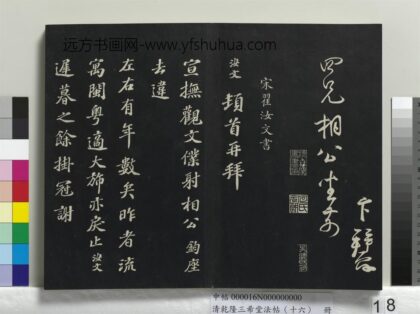 远方书画网-www.yfshuhua.com
四兄相公坐前
宋翟汝文书
汝文 頓首再拜
宣撫觀文僕射相公 鈞座
去違
左右有年數矣昨者流
寓閩粵適大旆亦戾止 汝文
遲暮之餘掛冠謝
中帖 000016N000000000
清乾隆三希堂法帖(十六) 冊
18